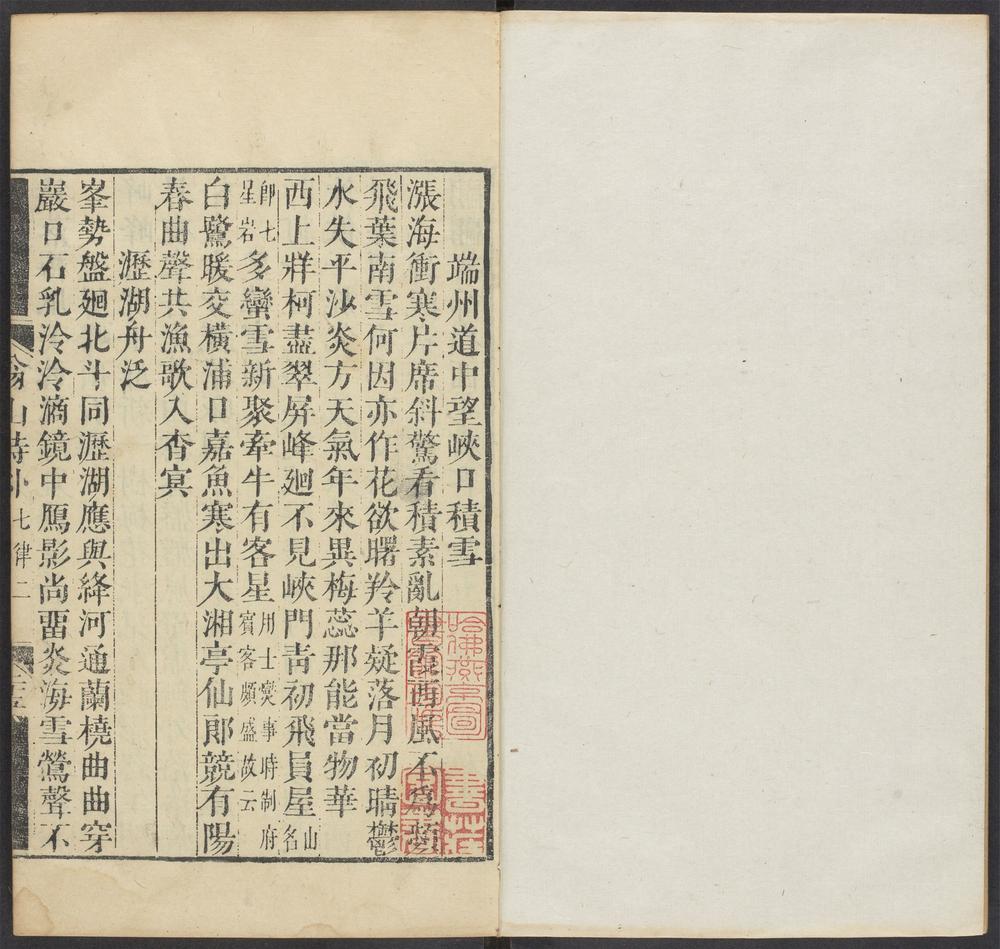 端州道中望峽口積雪
漲海衝寒片席斜驚看積素亂朝霞西風不為
飛葉南雪何因亦作花欲曙羚羊疑落月初晴鬱
水失平沙炎方天氣年來異梅蕊那能當物華
西上牂柯盡翠屏峰廻不見峽門青初飛員屋山名
即七星岩多蠻雪新聚牽牛有客星用士燮事時制府賓客頗盛故云
白鷺暖交橫浦口嘉魚寒出大湘亭仙郎競有陽
春曲聲共漁歌入杳冥
瀝湖舟泛
峯勢盤廻北斗同瀝湖應與絳河通蘭橈曲曲穿
巖口石乳泠泠滴鏡中鴈影尚畱炎海雪鶯聲不
翁山詩外 七律二
哈佛燕京圖